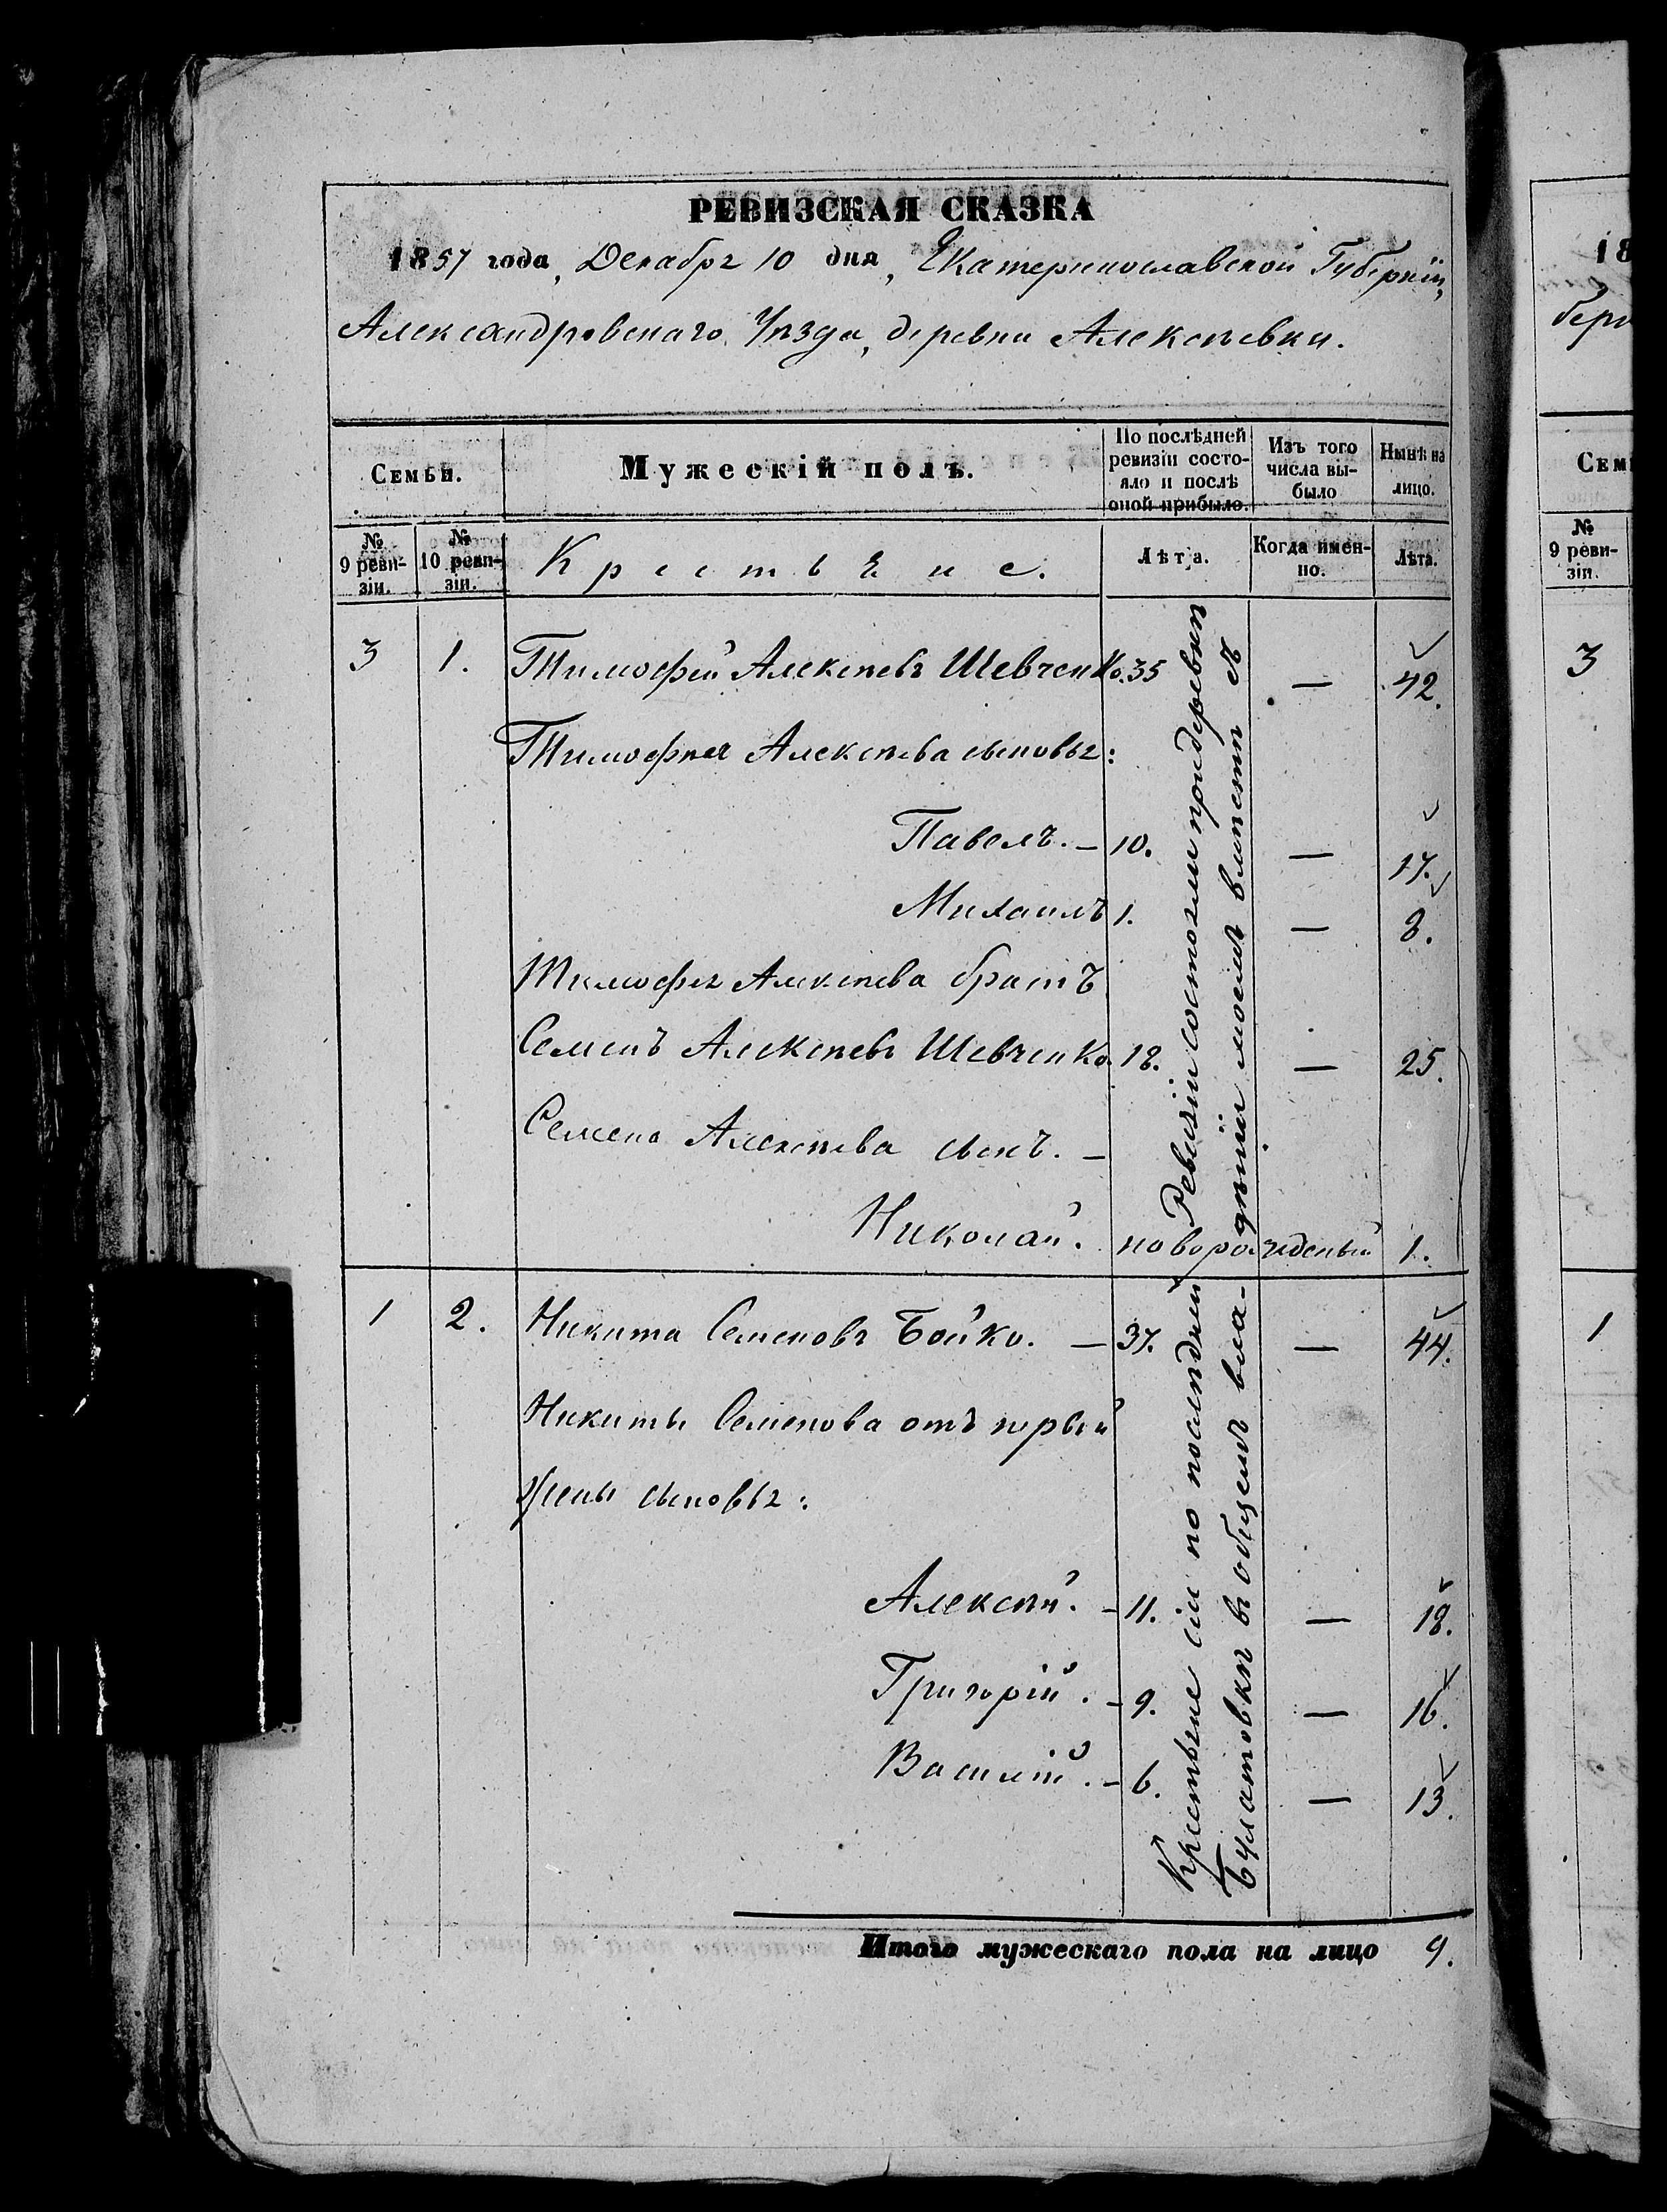 РЕВИЗСКАЯ СКАЗКА
1857 года, Декабря 10 дня, Екатеринославской Губерніи,
Александровскаго Уѣзда, деревни Алексѣевки.
Семьи.
Мужескій полъ.
По послѣдней ревизіи состояло и послѣ оной прибыло.
Изъ того числа выбыло
Нынѣ на лицо.
№ 9 ревизіи.
№ 10 ревизіи.
Крестьяне.
Лѣта.
Когда именно.
Лѣта.
3 1. Тимофей Алексѣевъ Шевченко. 35 — 42.
Тимофея Алексѣева сыновья:
Павелъ. — 10. — 17.
Михаилъ 1. — 8.
Тимофея Алексѣева братъ
Семенъ Алексѣевъ Шевченко. 18. — 25.
Семена Алексѣева сынъ. —
Николай. новорожденый 1.
1 2. Никита Семеновъ Бойко. — 37. — 44.
Никиты Семенова отъ первой
жены сыновья:
Алексѣй. — 11. — 18.
Григорій. — 9. — 16.
Василій. — 6. — 13.
Крестьяне сіи по послѣдней Ревизіи состояли при деревнѣ
Булатовкѣ въ общемъ вла-дѣніи моемъ вмѣстѣ
Итого мужескаго пола на лицо 9.
18
берн
Сем
№
9 реви-
зіи.
3
1